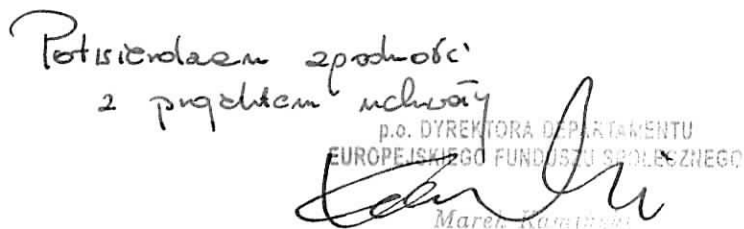 Potwierdzam zgodność
z projektem uchwały
p.o. DYREKTORA DEPARTAMENTU
EUROPEJSKIEGO FUNDUSZU SPOŁECZNEGO
Marek Kamiński